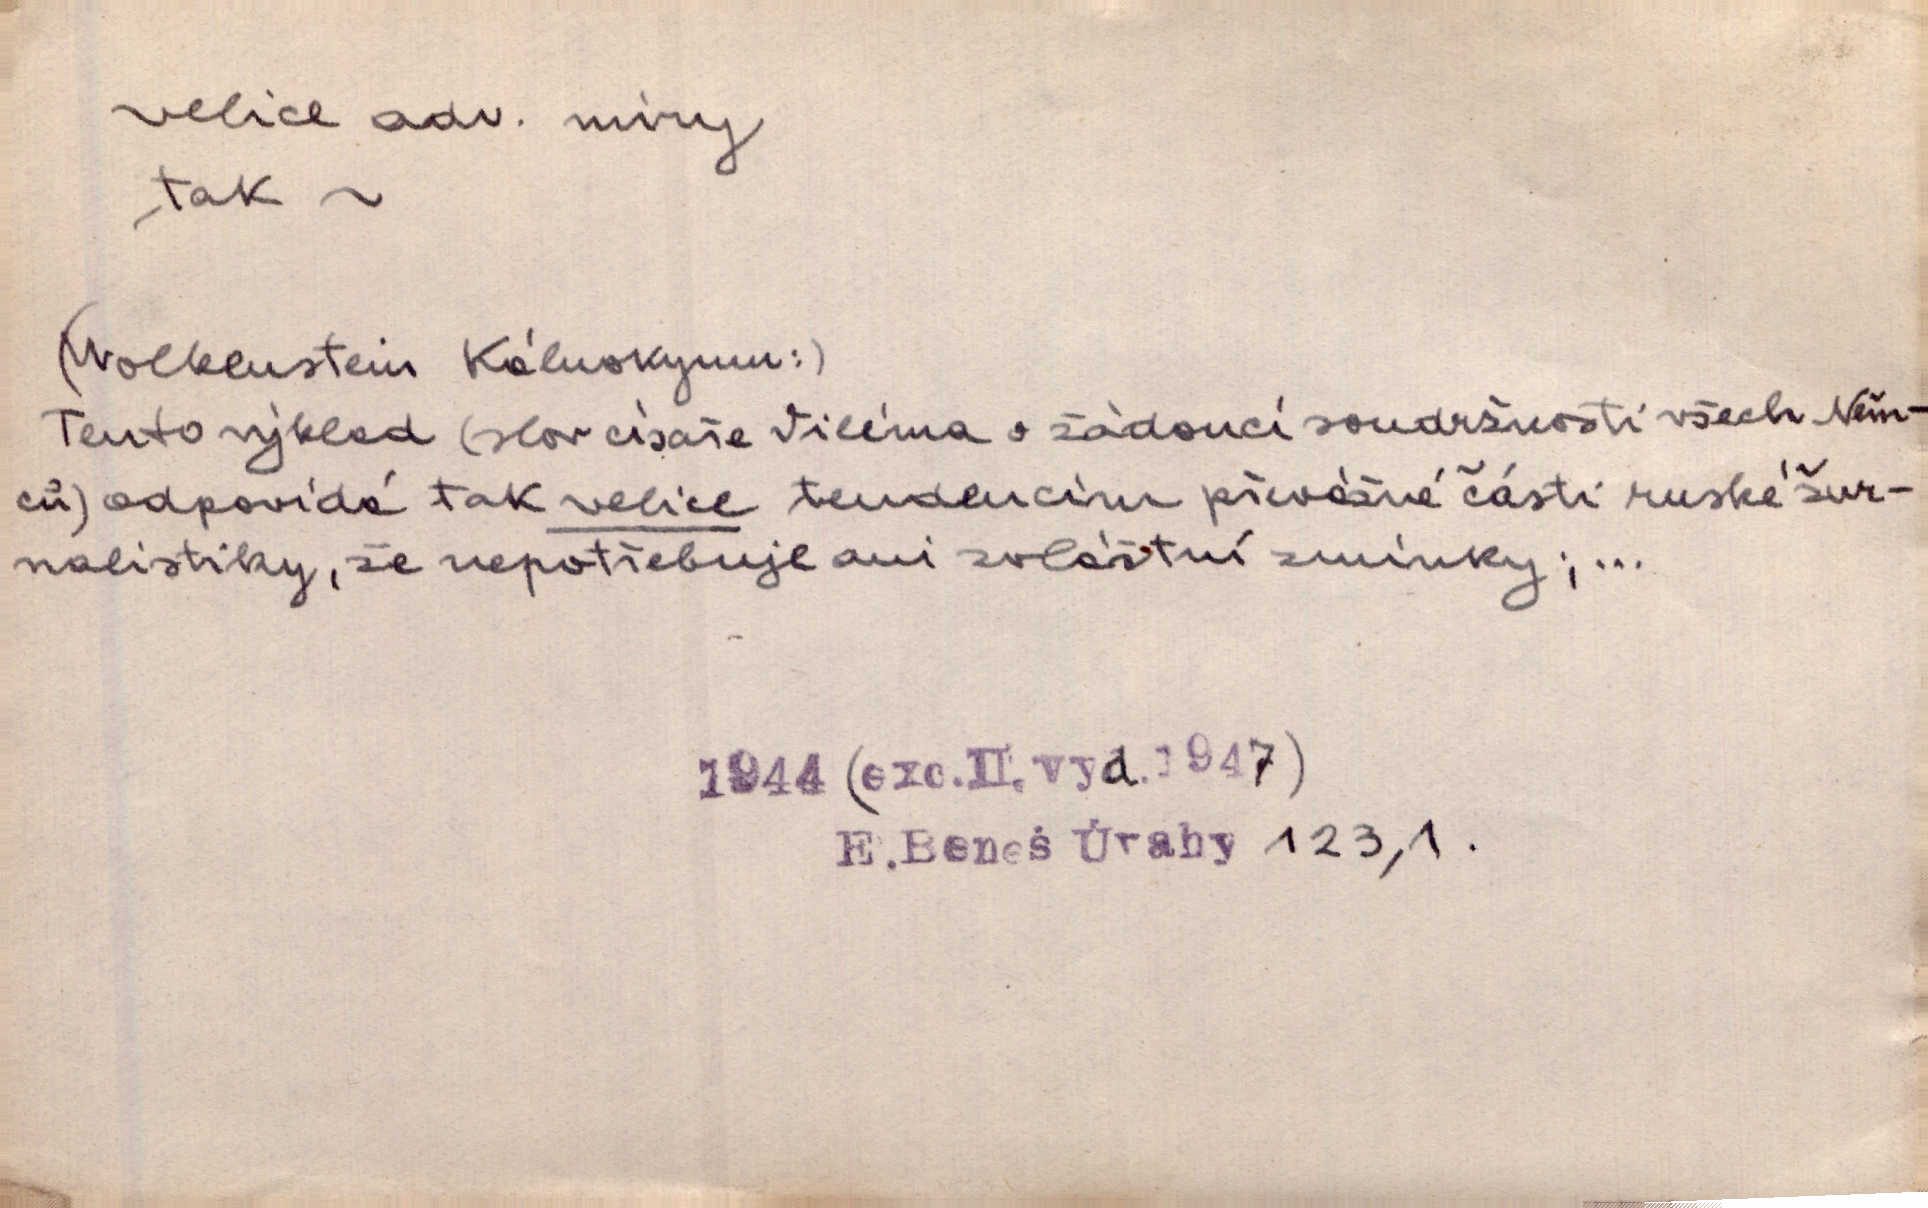 velice adv. míry
tak ~
(Wolkenstein Kálnokymu:)
Tento výklad (slov císaře Viléma o žádoucí soudržnosti všech Něm-
ců) odpovídá tak velice tendencím převážné části ruské žur-
nalistiky, že nepotřebuje ani zvláštní zmínky; ...
1944 (exc. II. vyd. 1947)
E. Beneš Úvahy 123,1.